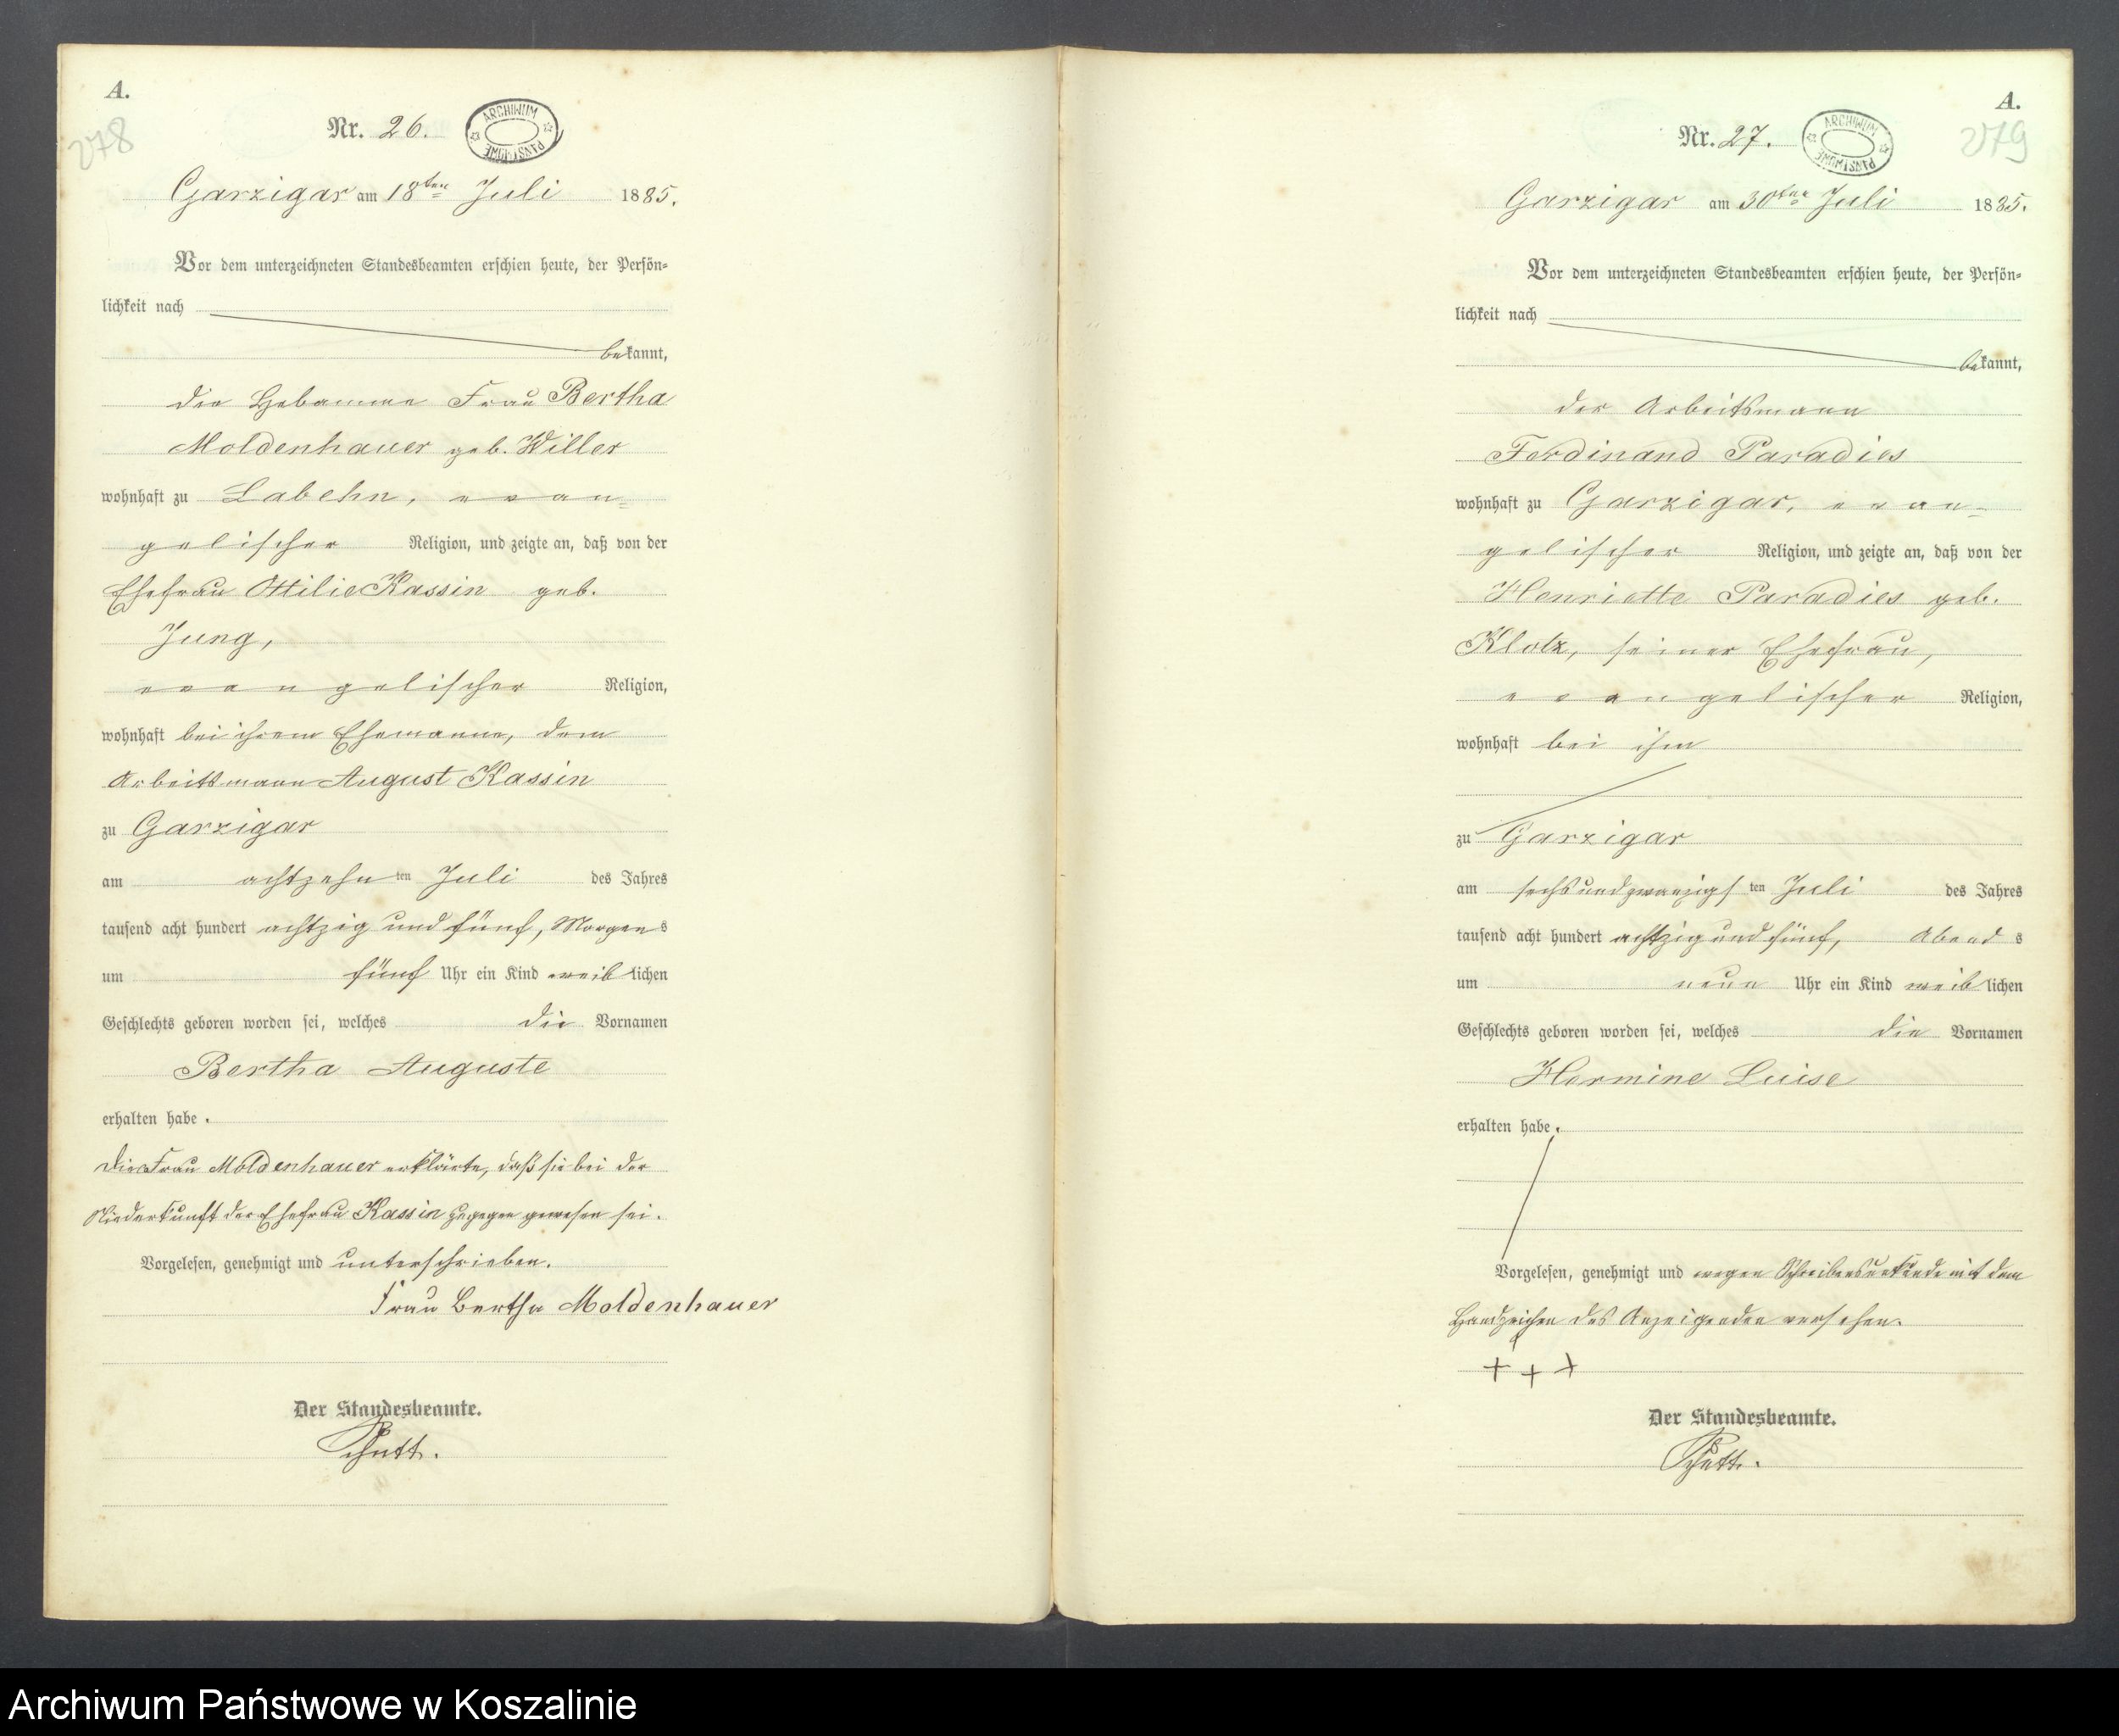 A.
278
Nr. 26.
ARCHIWUM PAŃSTWOWE
Garzigar am 18ten Juli 1885.
Vor dem unterzeichneten Standesbeamten erschien heute, der Persön-
lichkeit nach
bekannt,
die Hebamme Frau Bertha
Moldenhauer geb. Willer
wohnhaft zu Labehn, evan-
gelischer Religion, und zeigte an, daß von der
Ehefrau Ottilie Kassin geb.
Jung,
evangelischer Religion,
wohnhaft bei ihrem Ehemanne, dem
Arbeitsmann August Kassin
zu Garzigar
am achtzehnten Juli des Jahres
tausend acht hundert achtzig und fünf, Morgens
um fünf Uhr ein Kind weiblichen
Geschlechts geboren worden sei, welches die Vornamen
Bertha Auguste
erhalten habe.
Die Frau Moldenhauer erklärte, daß sie bei der
Niederkunft der Ehefrau Kassin zugegen gewesen sei.
Vorgelesen, genehmigt und unterschrieben.
Frau Bertha Moldenhauer
Der Standesbeamte.
Schutt.
A.
279
Nr. 27.
ARCHIWUM PAŃSTWOWE
Garzigar am 30ten Juli 1885.
Vor dem unterzeichneten Standesbeamten erschien heute, der Persön-
lichkeit nach
bekannt,
der Arbeitsmann
Ferdinand Paradies
wohnhaft zu Garzigar, evan-
gelischer Religion, und zeigte an, daß von der
Henriette Paradies geb.
Klotz, seiner Ehefrau,
evangelischer Religion,
wohnhaft bei ihm
zu Garzigar
am sechsundzwanzigsten Juli des Jahres
tausend acht hundert achtzig und fünf, Abends
um neun Uhr ein Kind weiblichen
Geschlechts geboren worden sei, welches die Vornamen
Hermine Luise
erhalten habe.
Vorgelesen, genehmigt und wegen Schreibensunkunde mit dem
Handzeichen des Anzeigenden versehen.
+ + +
Der Standesbeamte.
Schutt.
Archiwum Państwowe w Koszalinie